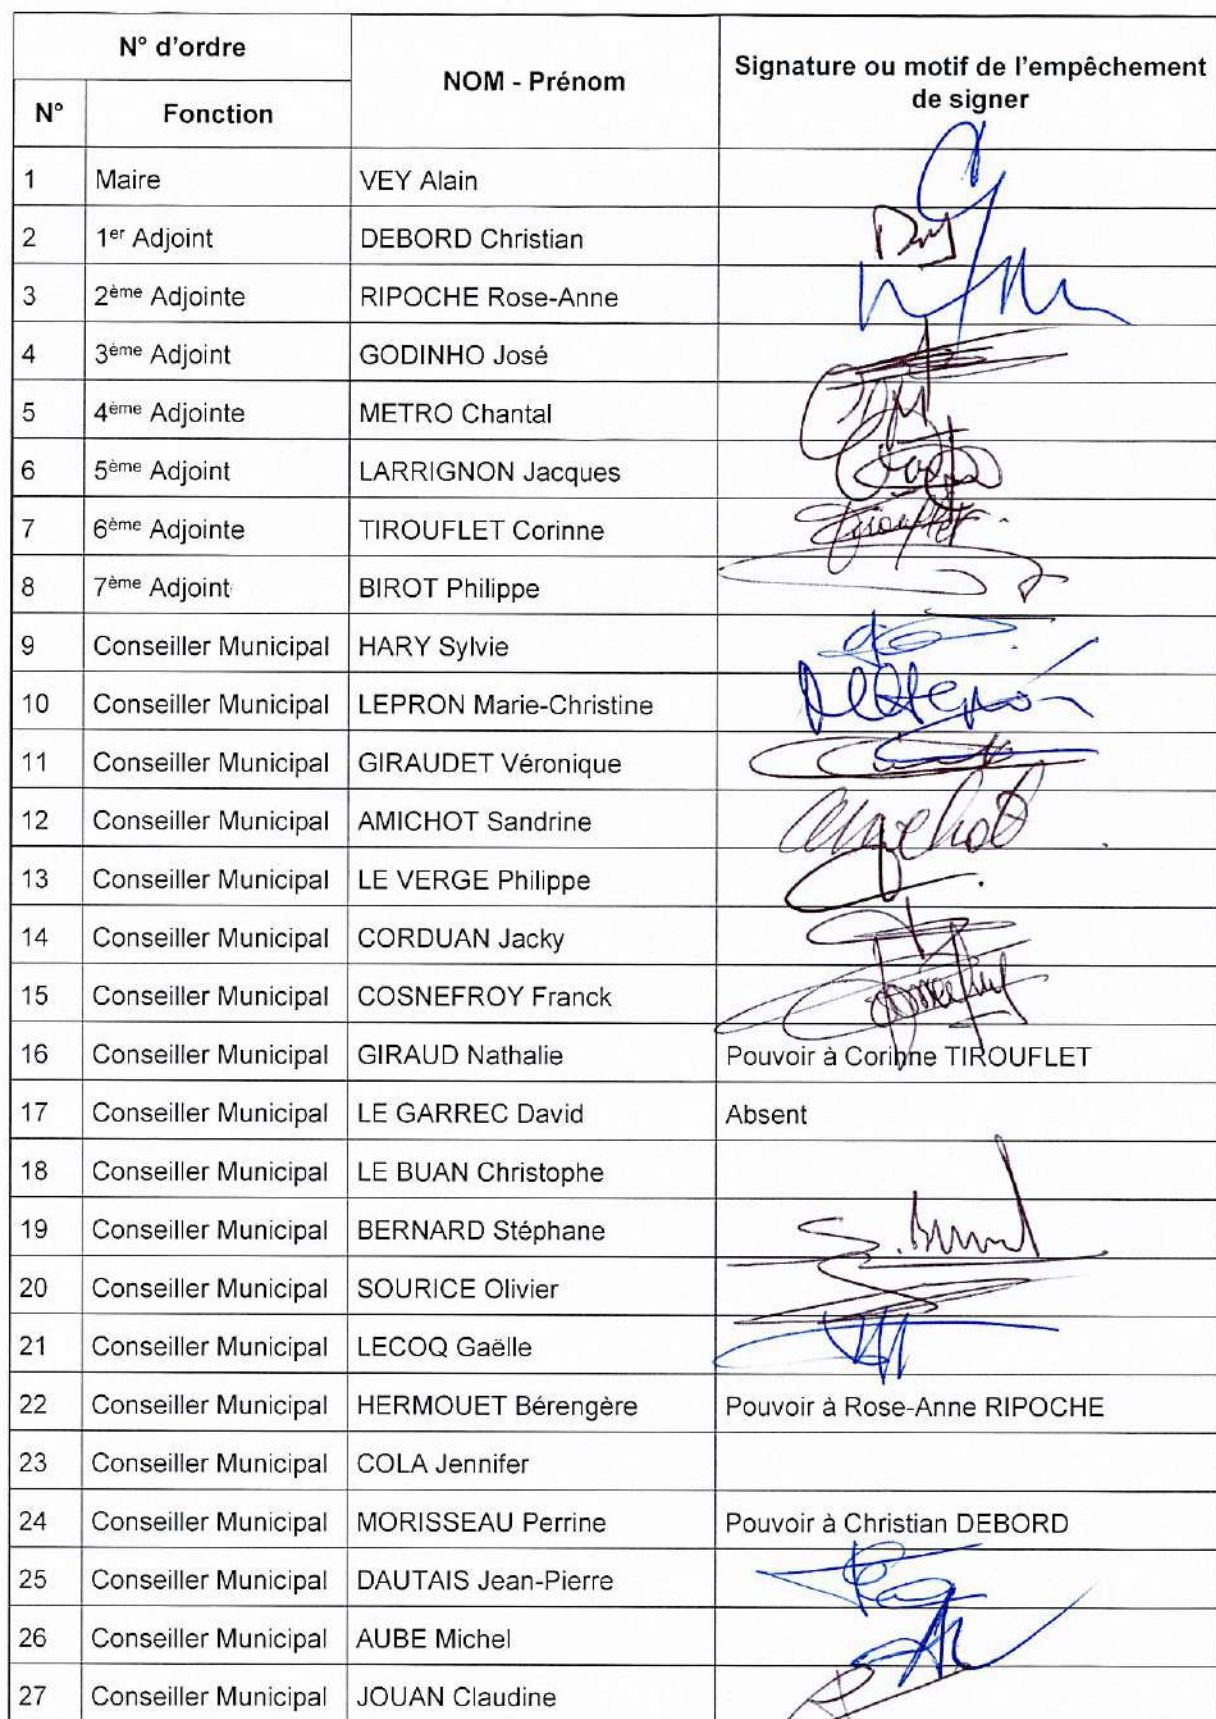 N° d'ordre
NOM - Prénom
Signature ou motif de l'empêchement
de signer
N° Fonction
1 Maire VEY Alain
2 1er Adjoint DEBORD Christian
3 2ème Adjointe RIPOCHE Rose-Anne
4 3ème Adjoint GODINHO José
5 4ème Adjointe METRO Chantal
6 5ème Adjoint LARRIGNON Jacques
7 6ème Adjointe TIROUFLET Corinne
8 7ème Adjoint BIROT Philippe
9 Conseiller Municipal HARY Sylvie
10 Conseiller Municipal LEPRON Marie-Christine
11 Conseiller Municipal GIRAUDET Véronique
12 Conseiller Municipal AMICHOT Sandrine
13 Conseiller Municipal LE VERGE Philippe
14 Conseiller Municipal CORDUAN Jacky
15 Conseiller Municipal COSNEFROY Franck
16 Conseiller Municipal GIRAUD Nathalie Pouvoir à Corinne TIROUFLET
17 Conseiller Municipal LE GARREC David Absent
18 Conseiller Municipal LE BUAN Christophe
19 Conseiller Municipal BERNARD Stéphane
20 Conseiller Municipal SOURICE Olivier
21 Conseiller Municipal LECOQ Gaëlle
22 Conseiller Municipal HERMOUET Bérengère Pouvoir à Rose-Anne RIPOCHE
23 Conseiller Municipal COLA Jennifer
24 Conseiller Municipal MORISSEAU Perrine Pouvoir à Christian DEBORD
25 Conseiller Municipal DAUTAIS Jean-Pierre
26 Conseiller Municipal AUBE Michel
27 Conseiller Municipal JOUAN Claudine